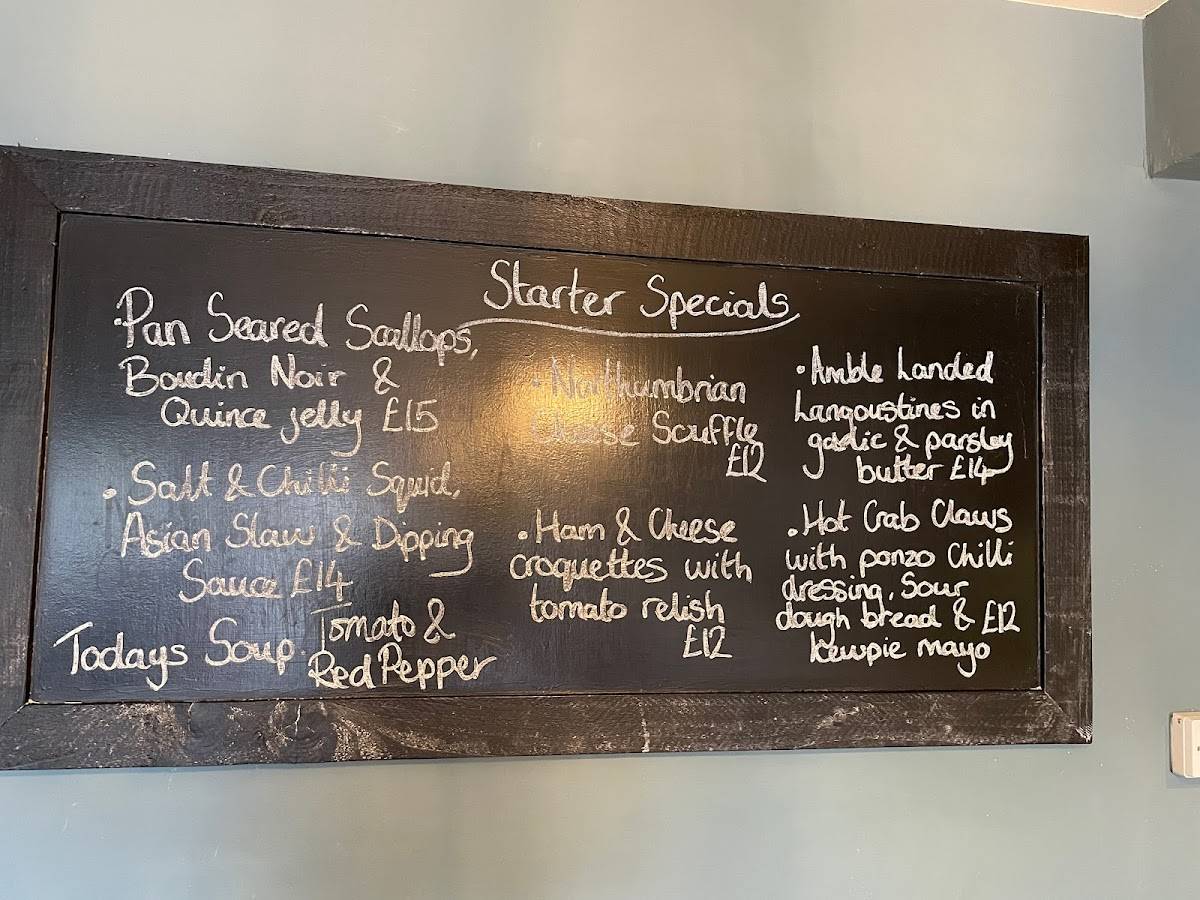 Starter Specials
·Pan Seared Scallops,
Boudin Noir &
Quince jelly £15
·Salt & Chilli Squid,
Asian Slaw & Dipping
Sauce £14
Todays Soup. Tomato &
Red Pepper
·Northumbrian
Cheese Souffle
£12
·Ham & Cheese
croquettes with
tomato relish
£12
·Amble Landed
Langoustines in
garlic & parsley
butter £14
·Hot Crab Claws
with ponzo Chilli
dressing, Sour
dough bread & £12
kewpie mayo